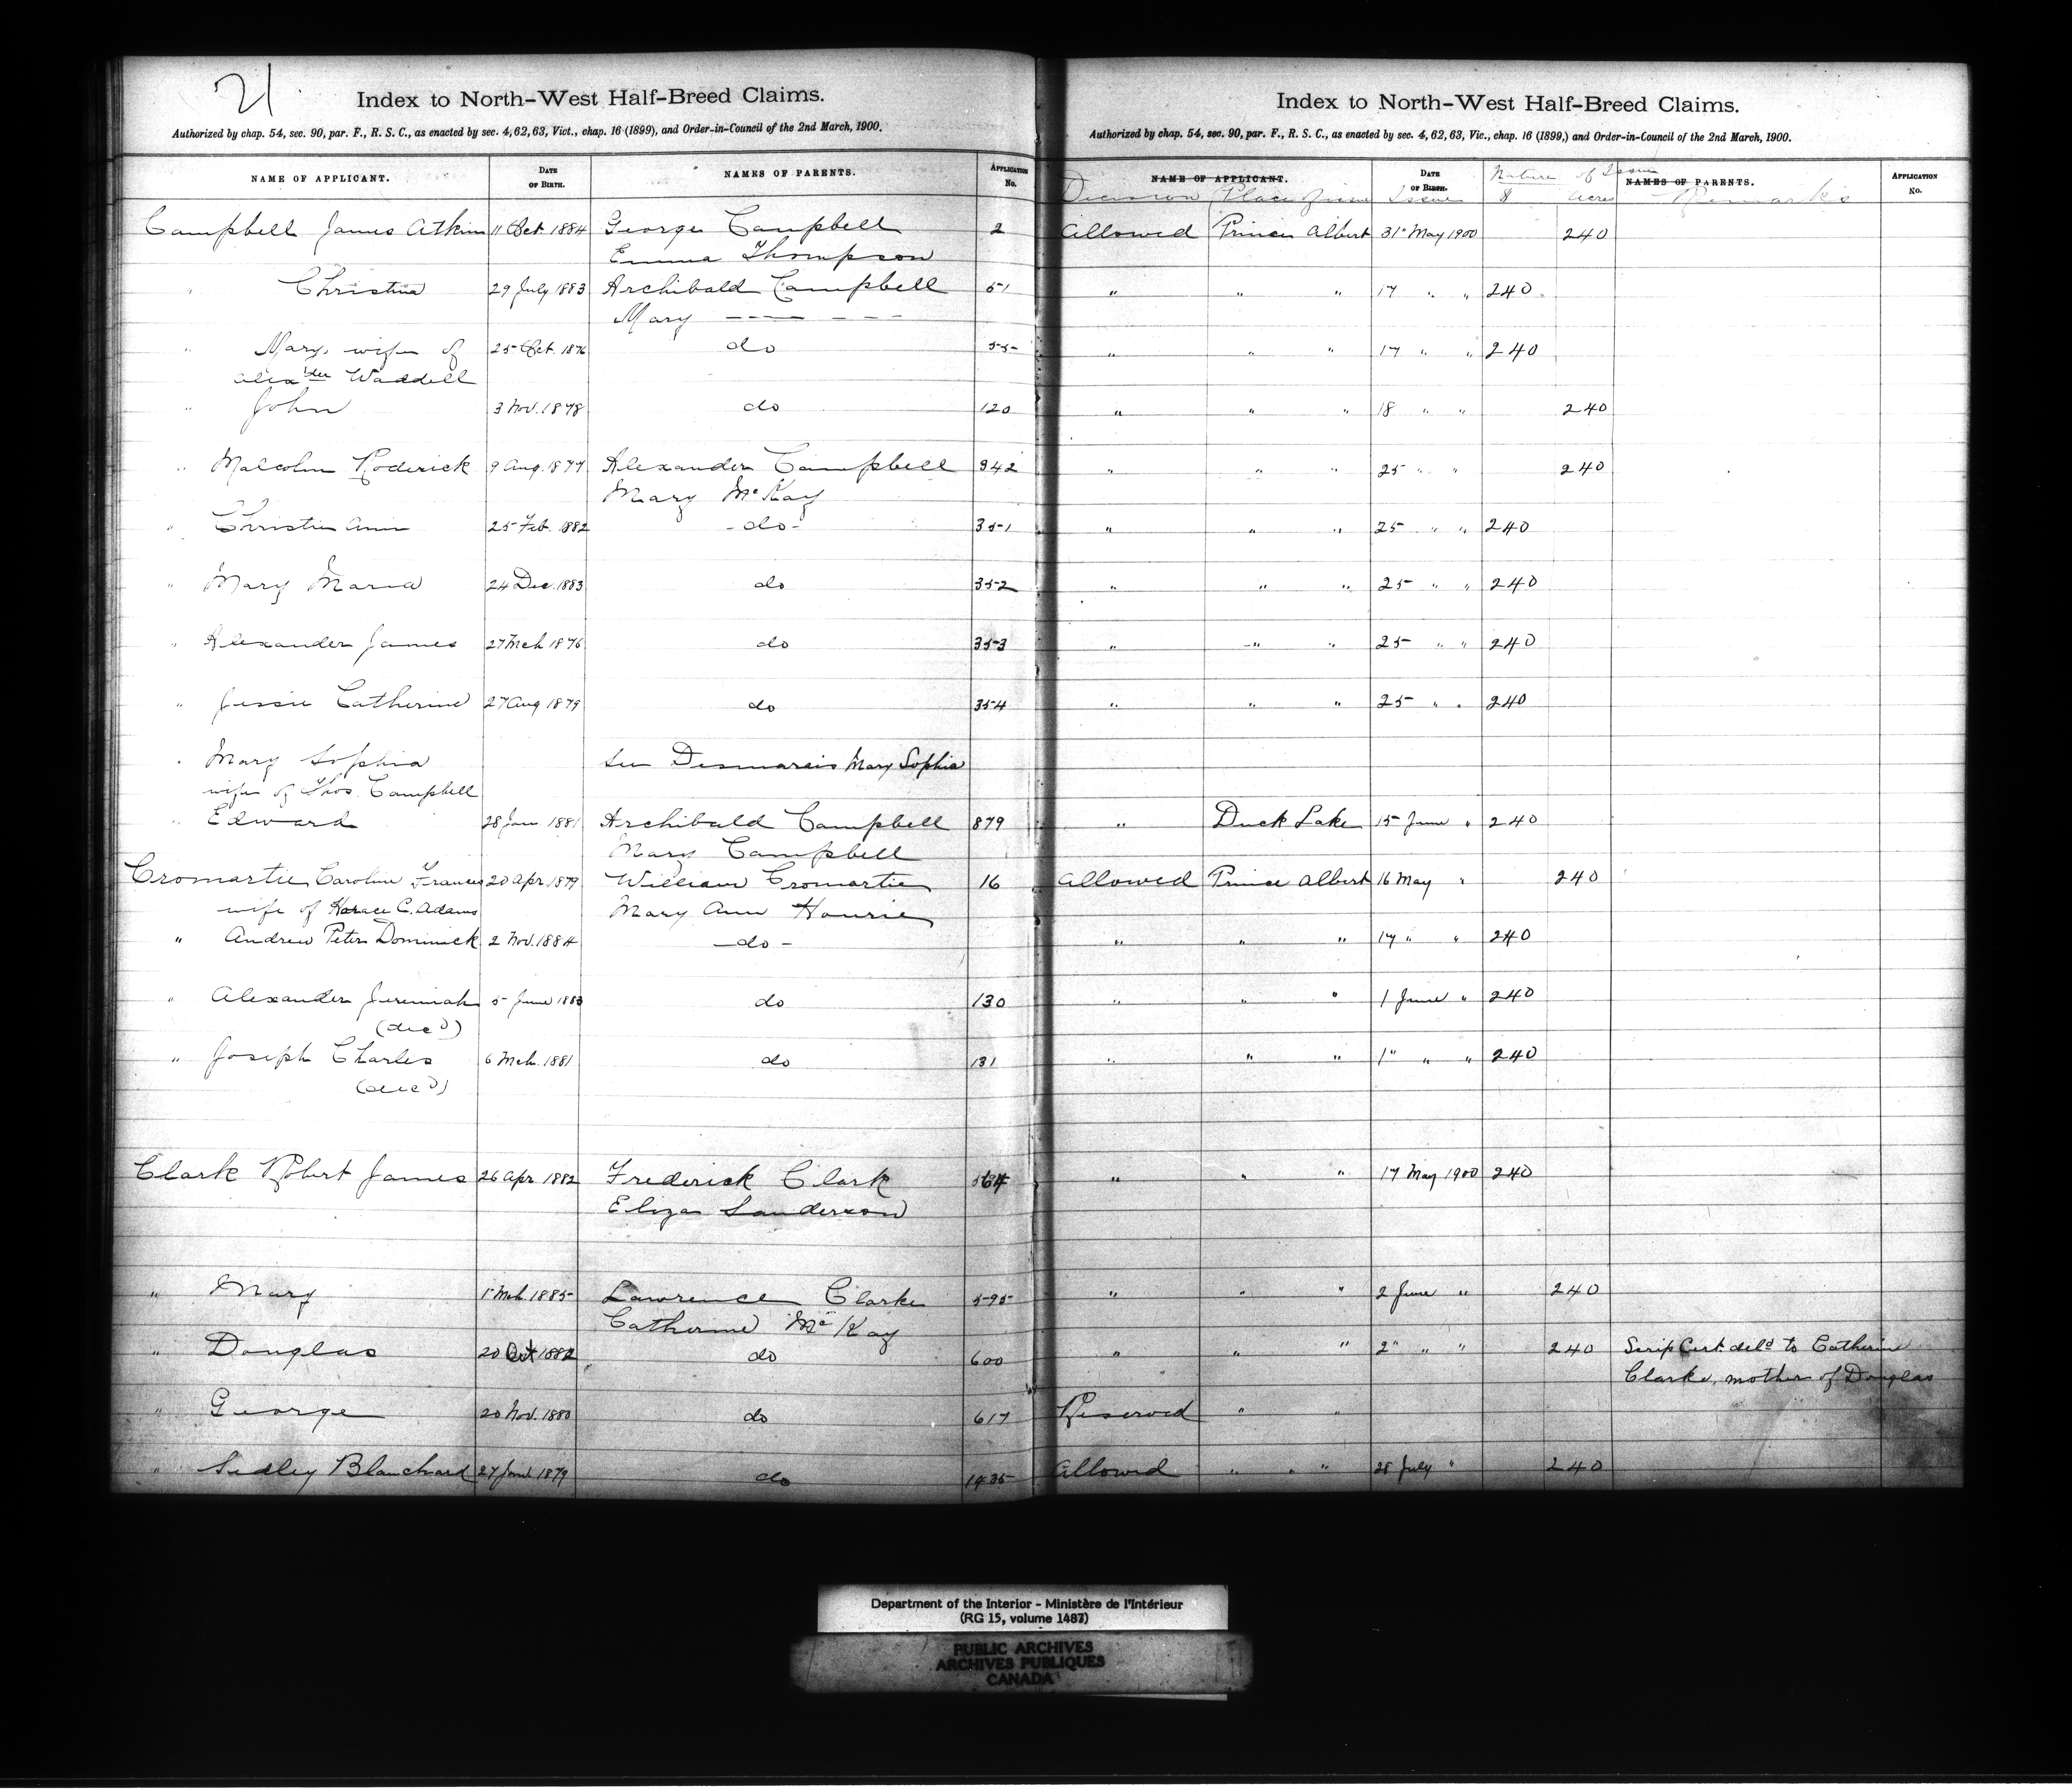 21
Index to North-West Half-Breed Claims.
Authorized by chap. 54, sec. 90, par. F., R. S. C., as enacted by sec. 4, 62, 63, Vict., chap. 16 (1899), and Order-in-Council of the 2nd March, 1900.
NAME OF APPLICANT. DATE OF BIRTH. NAMES OF PARENTS. APPLICATION No.
Campbell James Atkin 11 Oct. 1884 George Campbell 2
Emma Thompson
" Christina 29 July 1883 Archibald Campbell 51
Mary — — — —
" Mary, wife of 25 Oct. 1876 do 55
Alexder Waddell
" John 3 Nov. 1878 do 120
" Malcolm Roderick 9 Aug. 1877 Alexander Campbell 342
Mary McKay
" Christie Ann 25 Feb. 1882 -do- 351
" Mary Maria 24 Dec. 1883 do 352
" Alexander James 27 Mch 1876 do 353
" Jessie Catherine 27 Aug 1879 do 354
" Mary Sophia see Desmarais Mary Sophia
wife of Thos. Campbell
" Edward 28 Jan 1881 Archibald Campbell 879
Mary Campbell
Cromartie Caroline Frances 20 Apr. 1879 William Cromartie 16
wife of Horace C. Adams Mary Ann Hourie
" Andrew Peter Dominick 2 Nov. 1884 -do-
" Alexander Jeremiah 5 June 1883 do 130
(decd)
" Joseph Charles 6 Mch. 1881 do 131
(decd)
Clark Robert James 26 Apr. 1882 Frederick Clark 564
Eliza Sanderson
" Mary 1 Mch. 1885 Lawrence Clarke 595
Catherine McKay
" Douglas 20 Oct 1882 do 600
" George 20 Nov. 1880 do 617
" Sedley Blanchard 27 Jan 1879 do 1435
Index to North-West Half-Breed Claims.
Authorized by chap. 54, sec. 90, par. F., R. S. C., as enacted by sec. 4, 62, 63, Vic., chap. 16 (1899,) and Order-in-Council of the 2nd March, 1900.
NAME OF APPLICANT. DATE OF BIRTH. Nature of Issue NAMES OF PARENTS. APPLICATION No.
Decision Place of issue Issue $ Acres Remarks
Allowed Prince Albert 31 May 1900 240
" " " 17 " " 240
" " " 17 " " 240
" " " 18 " " 240
" " " 25 " " 240
" " " 25 " " 240
" " " 25 " " 240
" " " 25 " " 240
" " " 25 " " 240
" Duck Lake 15 June " 240
Allowed Prince Albert 16 May " 240
" " " 17 " " 240
" " " 1 June " 240
" " " 1" " " 240
" " " 17 May 1900 240
" " " 2 June " 240
" " " 2" " " 240 Scrip Cert. deld to Catherine
Clarke, mother of Douglas
Reserved " "
Allowed " " " 28 July " 240
Department of the Interior - Ministère de l'Intérieur
(RG 15, volume 1487)
PUBLIC ARCHIVES
ARCHIVES PUBLIQUES
CANADA